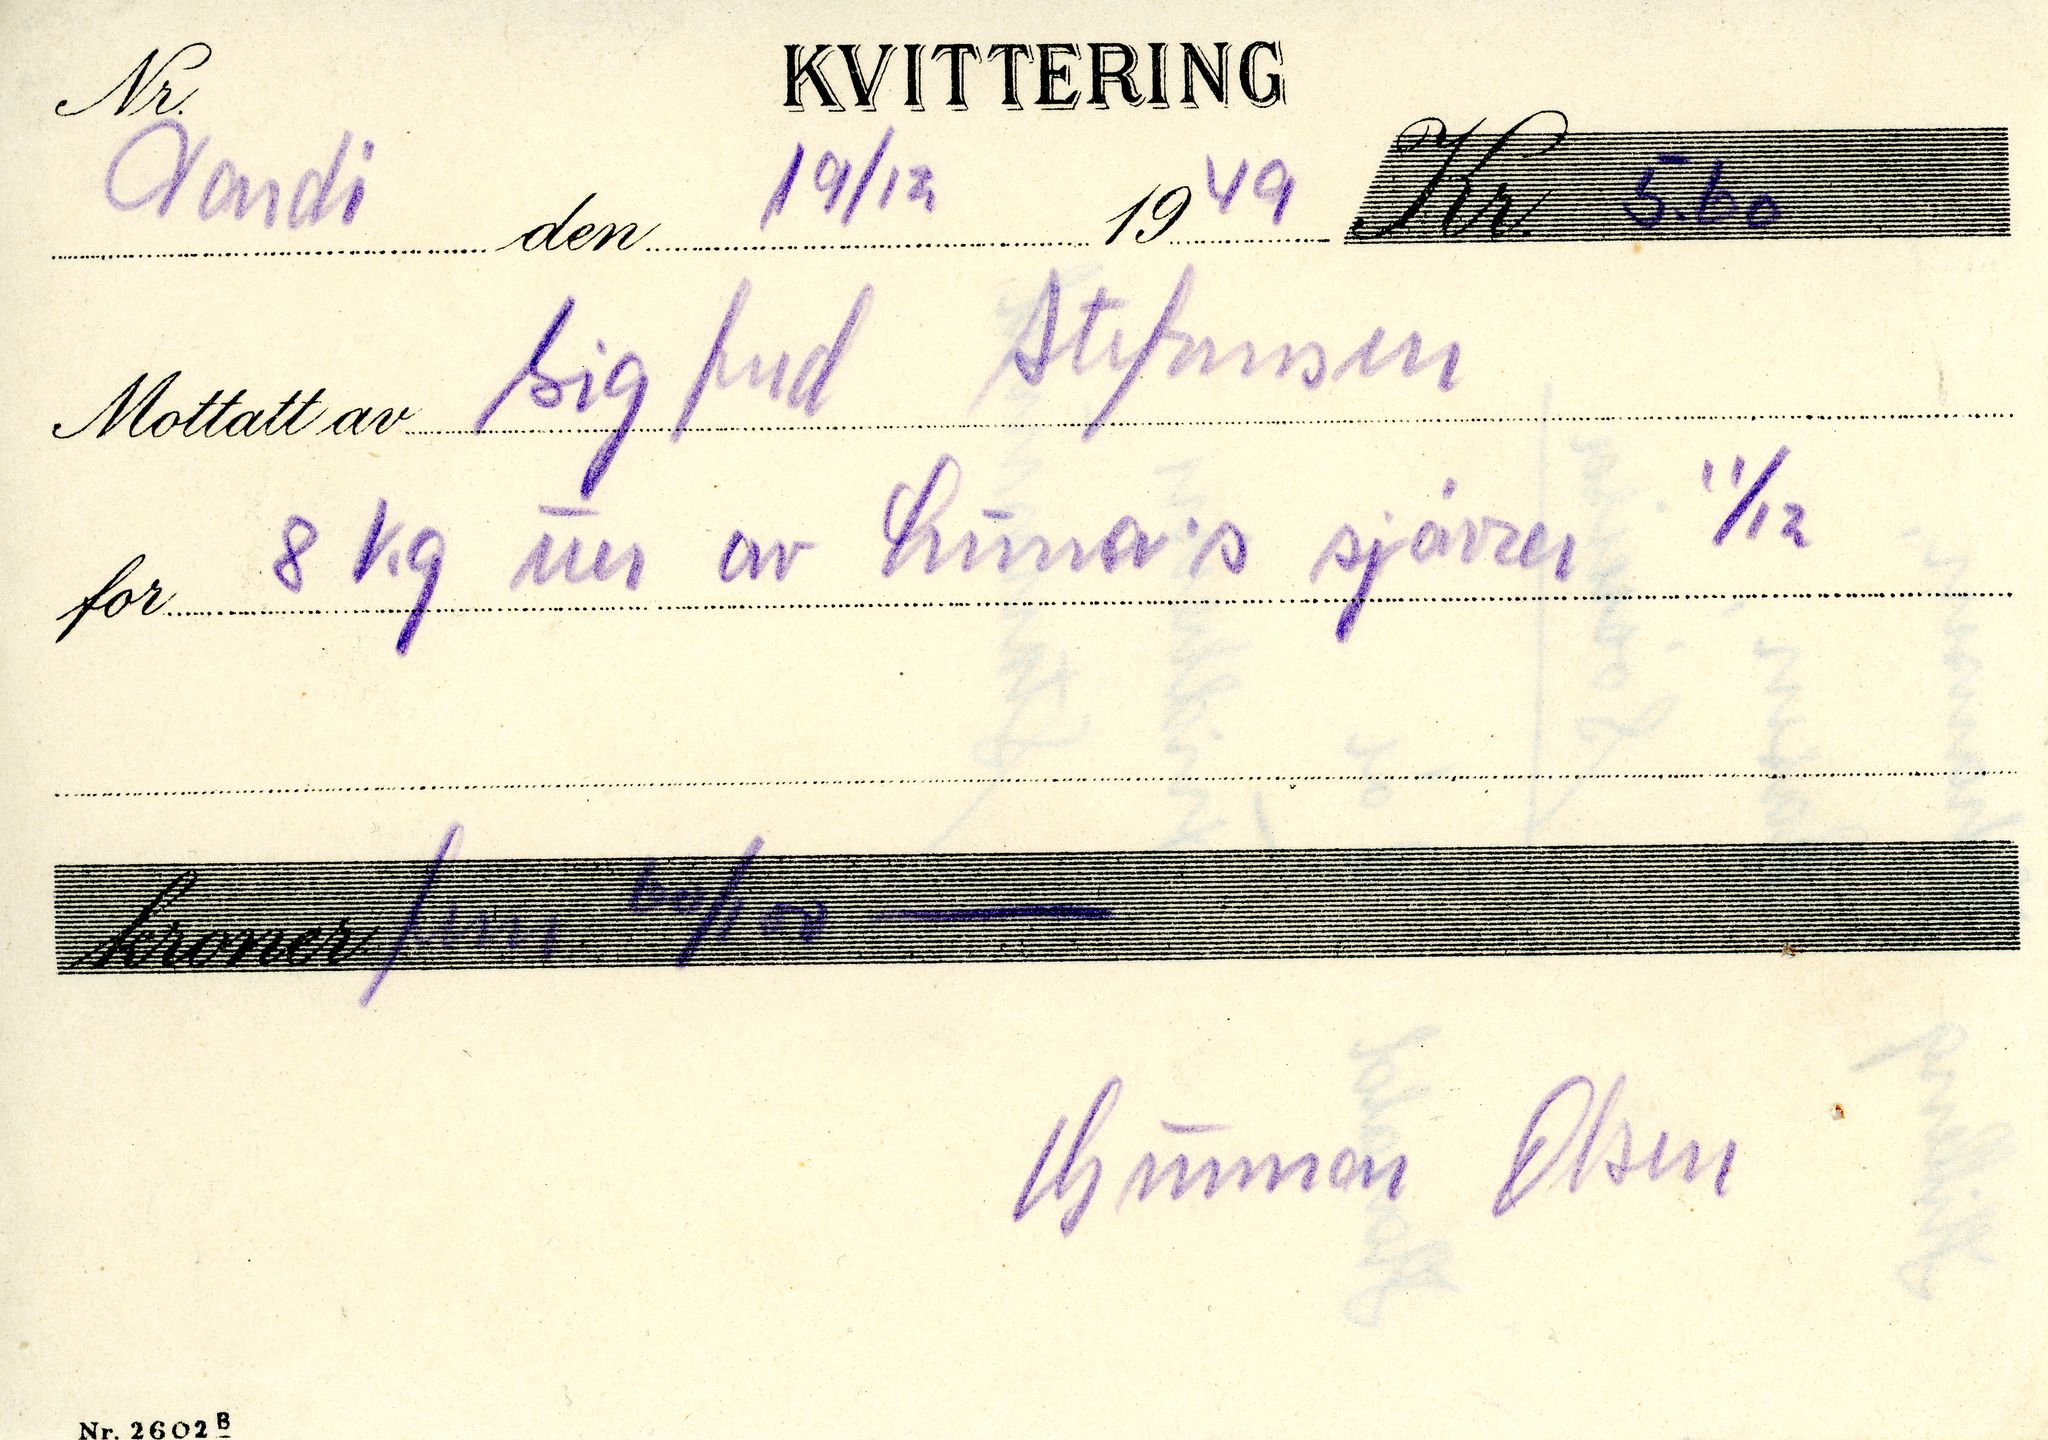 KVITTERING
Nr.
den 19/12 1949 Kr. 5.60
Mottatt av Sigfrid Stefansen
for 8 kg uer av Luna's sjøvær 11/12
kroner fem 60/100 —
Gunnar Olsen
Nr. 2602B